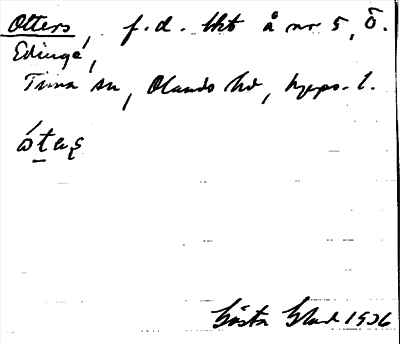 Otters, f.d. lht å nr 5, Ö.
Edinge,
Tuna sn, Olands hd, Upps. l.
Gösta Glad 1936